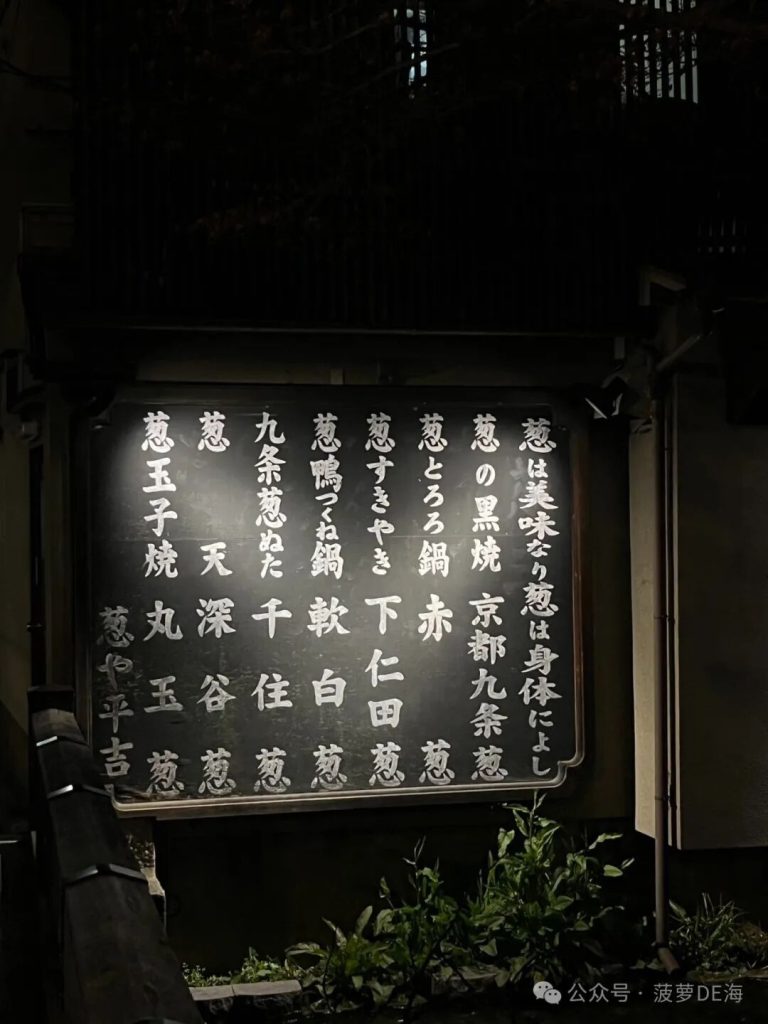 葱は美味なり葱は身体によし
葱の黒焼 京都九条葱
葱とろろ鍋 赤葱
葱すきやき 下仁田葱
葱鴨つくね鍋 軟白葱
九条葱ぬた 千住葱
葱天 深谷葱
葱玉子焼 丸玉葱
葱や平吉
公众号·菠萝DE海